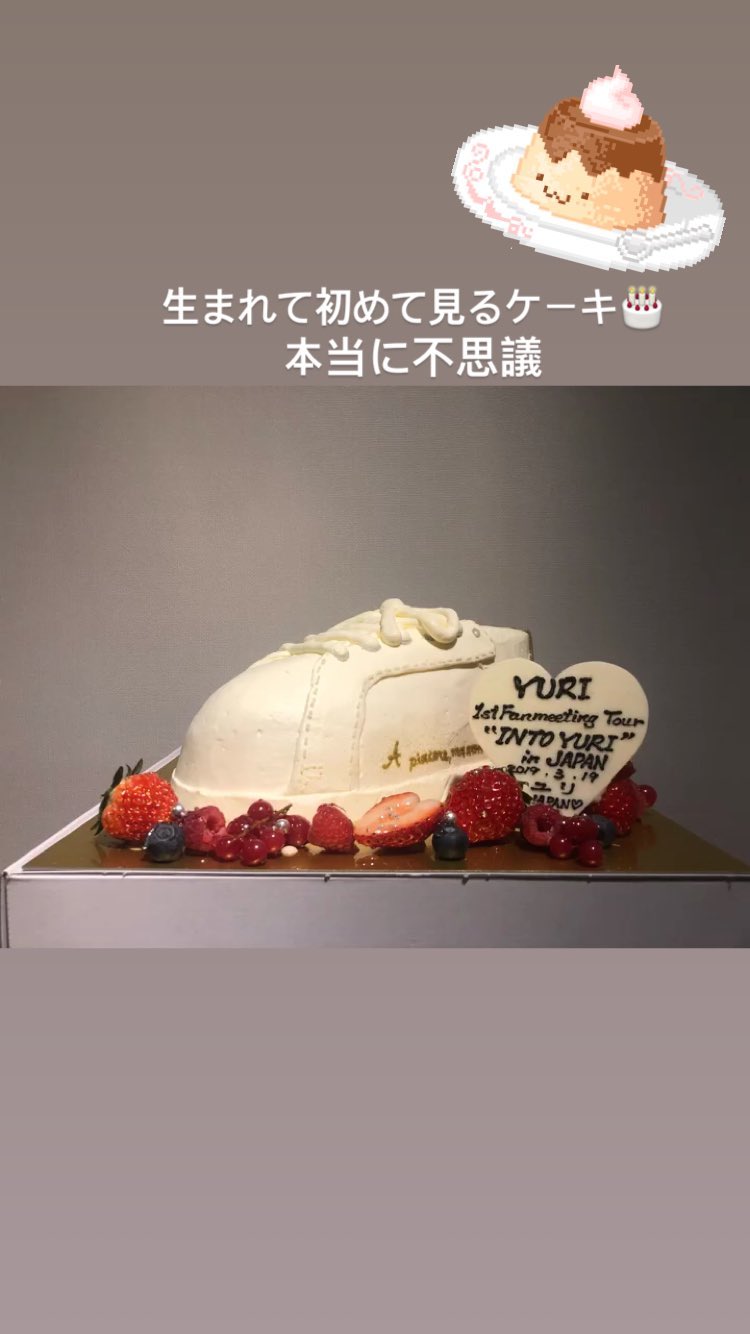 生まれて初めて見るケーキ🎂
本当に不思議
A
YURI
1st Fanmeeting Tour
"INTO YURI"
in JAPAN
2019.3.19
ユリ
JAPAN♡